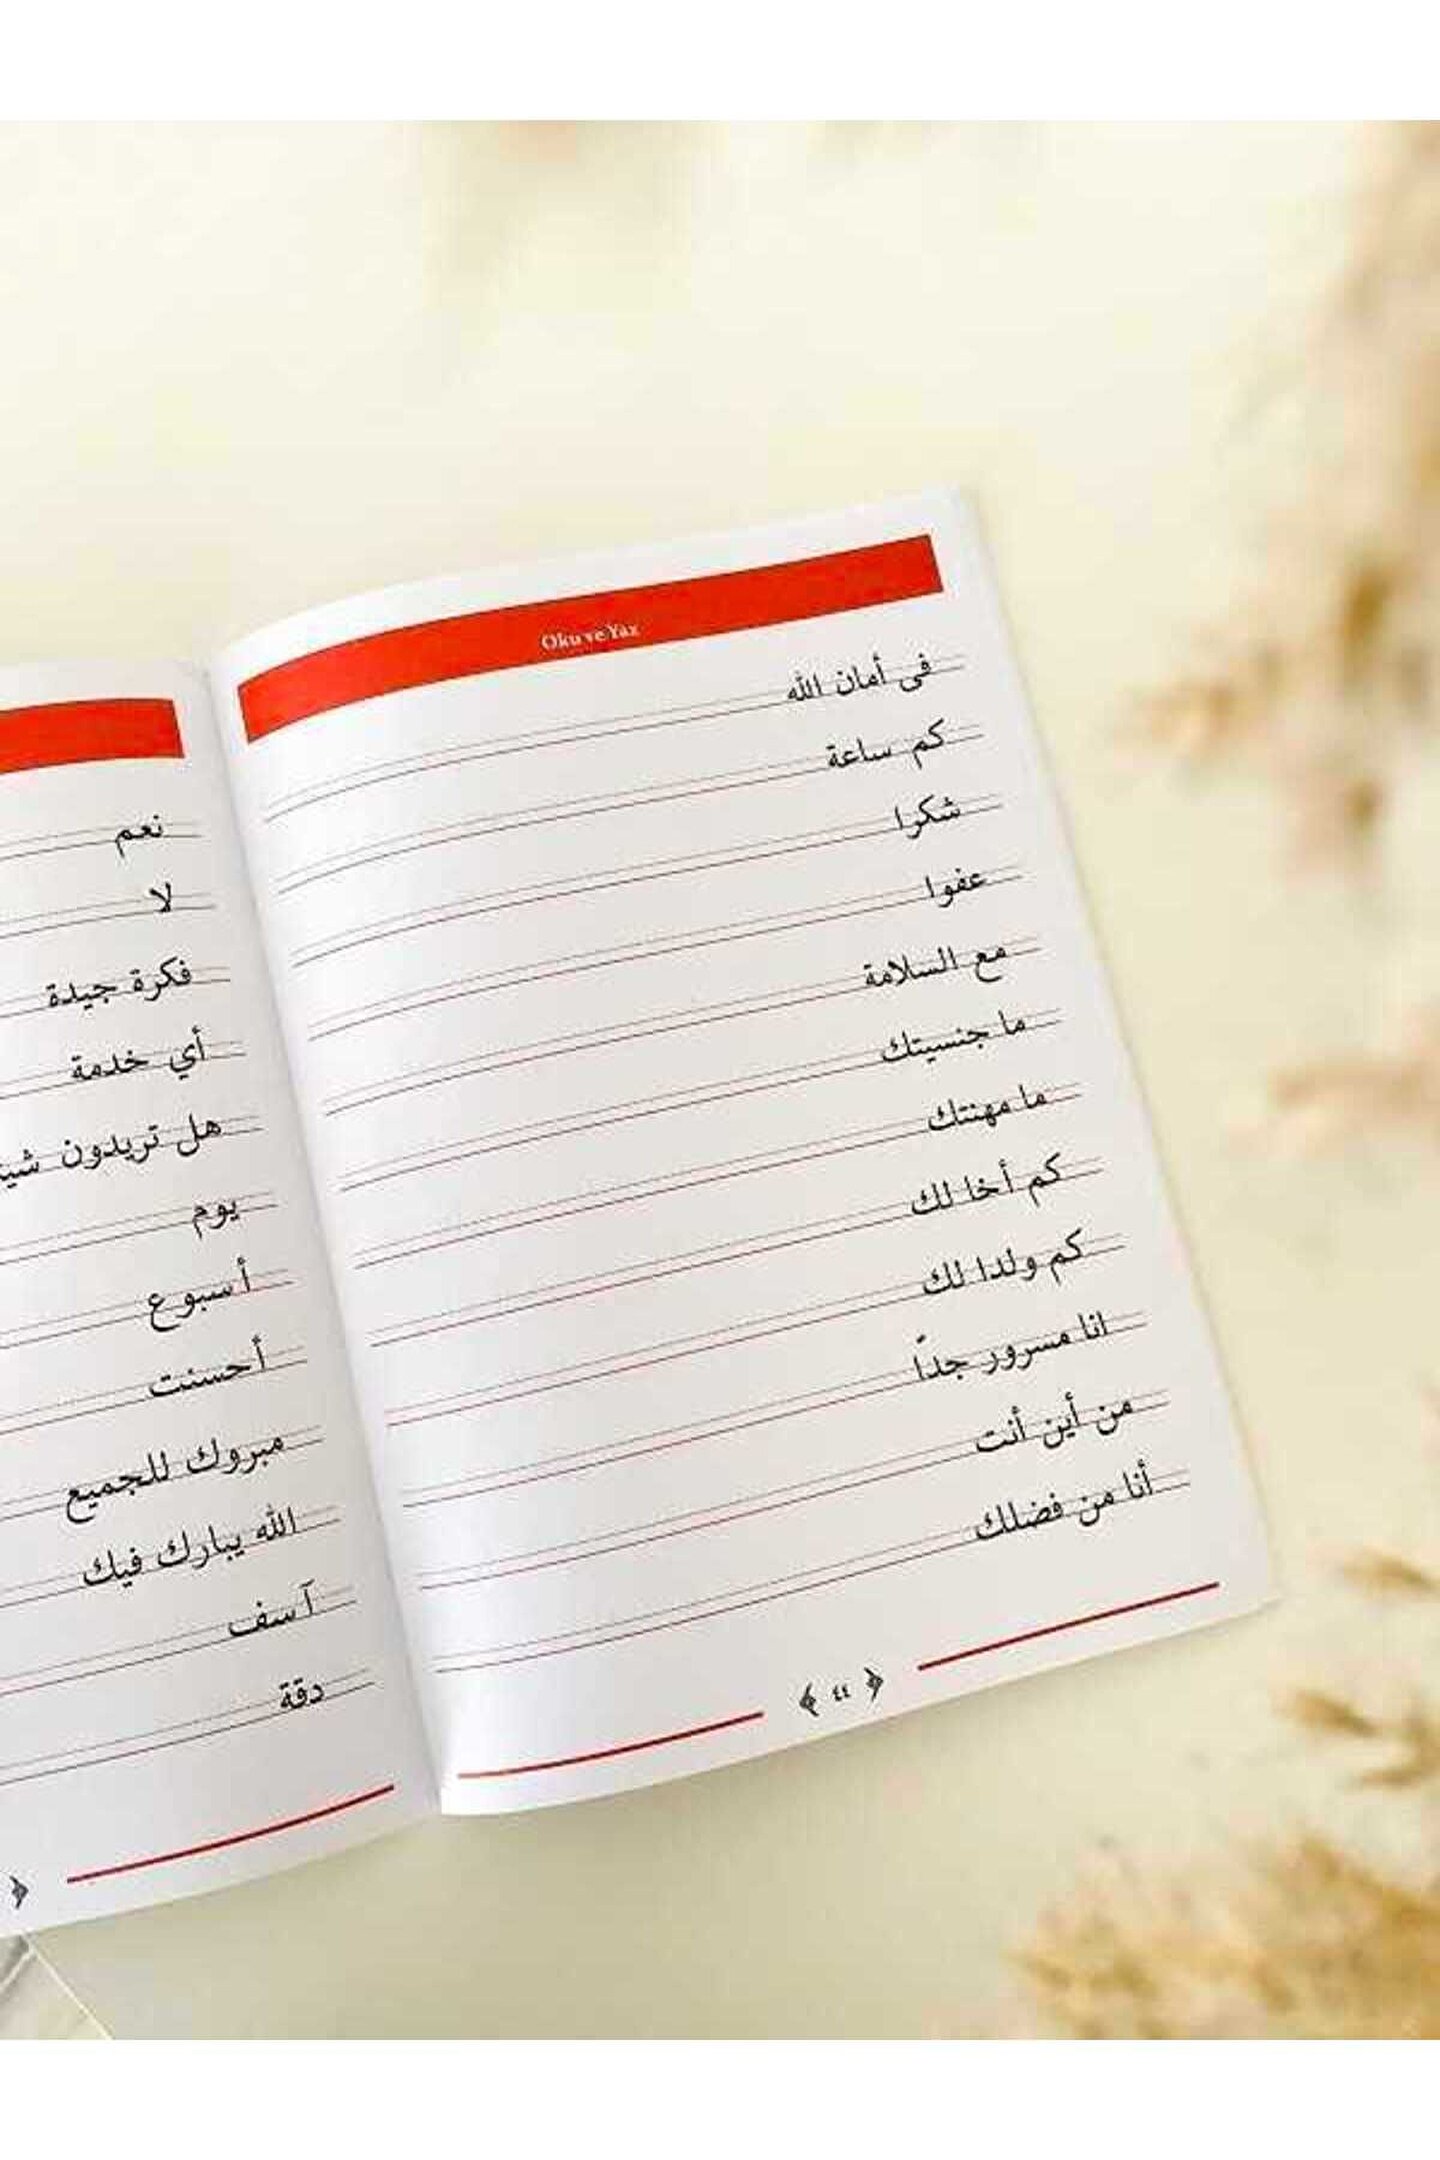 Oku ve Yaz
فى أمان الله
كم ساعة
شكرا
عفوا
مع السلامة
ما جنسيتك
ما مهنتك
كم أخا لك
كم ولدا لك
انا مسرور جدّا
من أين أنت
أنا من فضلك
٤٤
نعم
لا
فكرة جيدة
أي خدمة
هل تريدون
يوم
أسبوع
أحسنت
مبروك للجميع
الله يبارك فيك
آسف
دقة